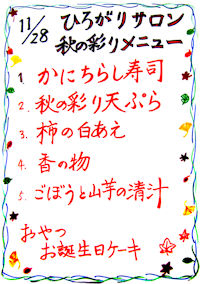 11/28 ひろがりサロン
秋の彩りメニュー
1 かにちらし寿司
2. 秋の彩り天ぷら
3. 柿の白あえ
4. 香の物
5. ごぼうと山芋の清汁
おやつ
お誕生日ケーキ